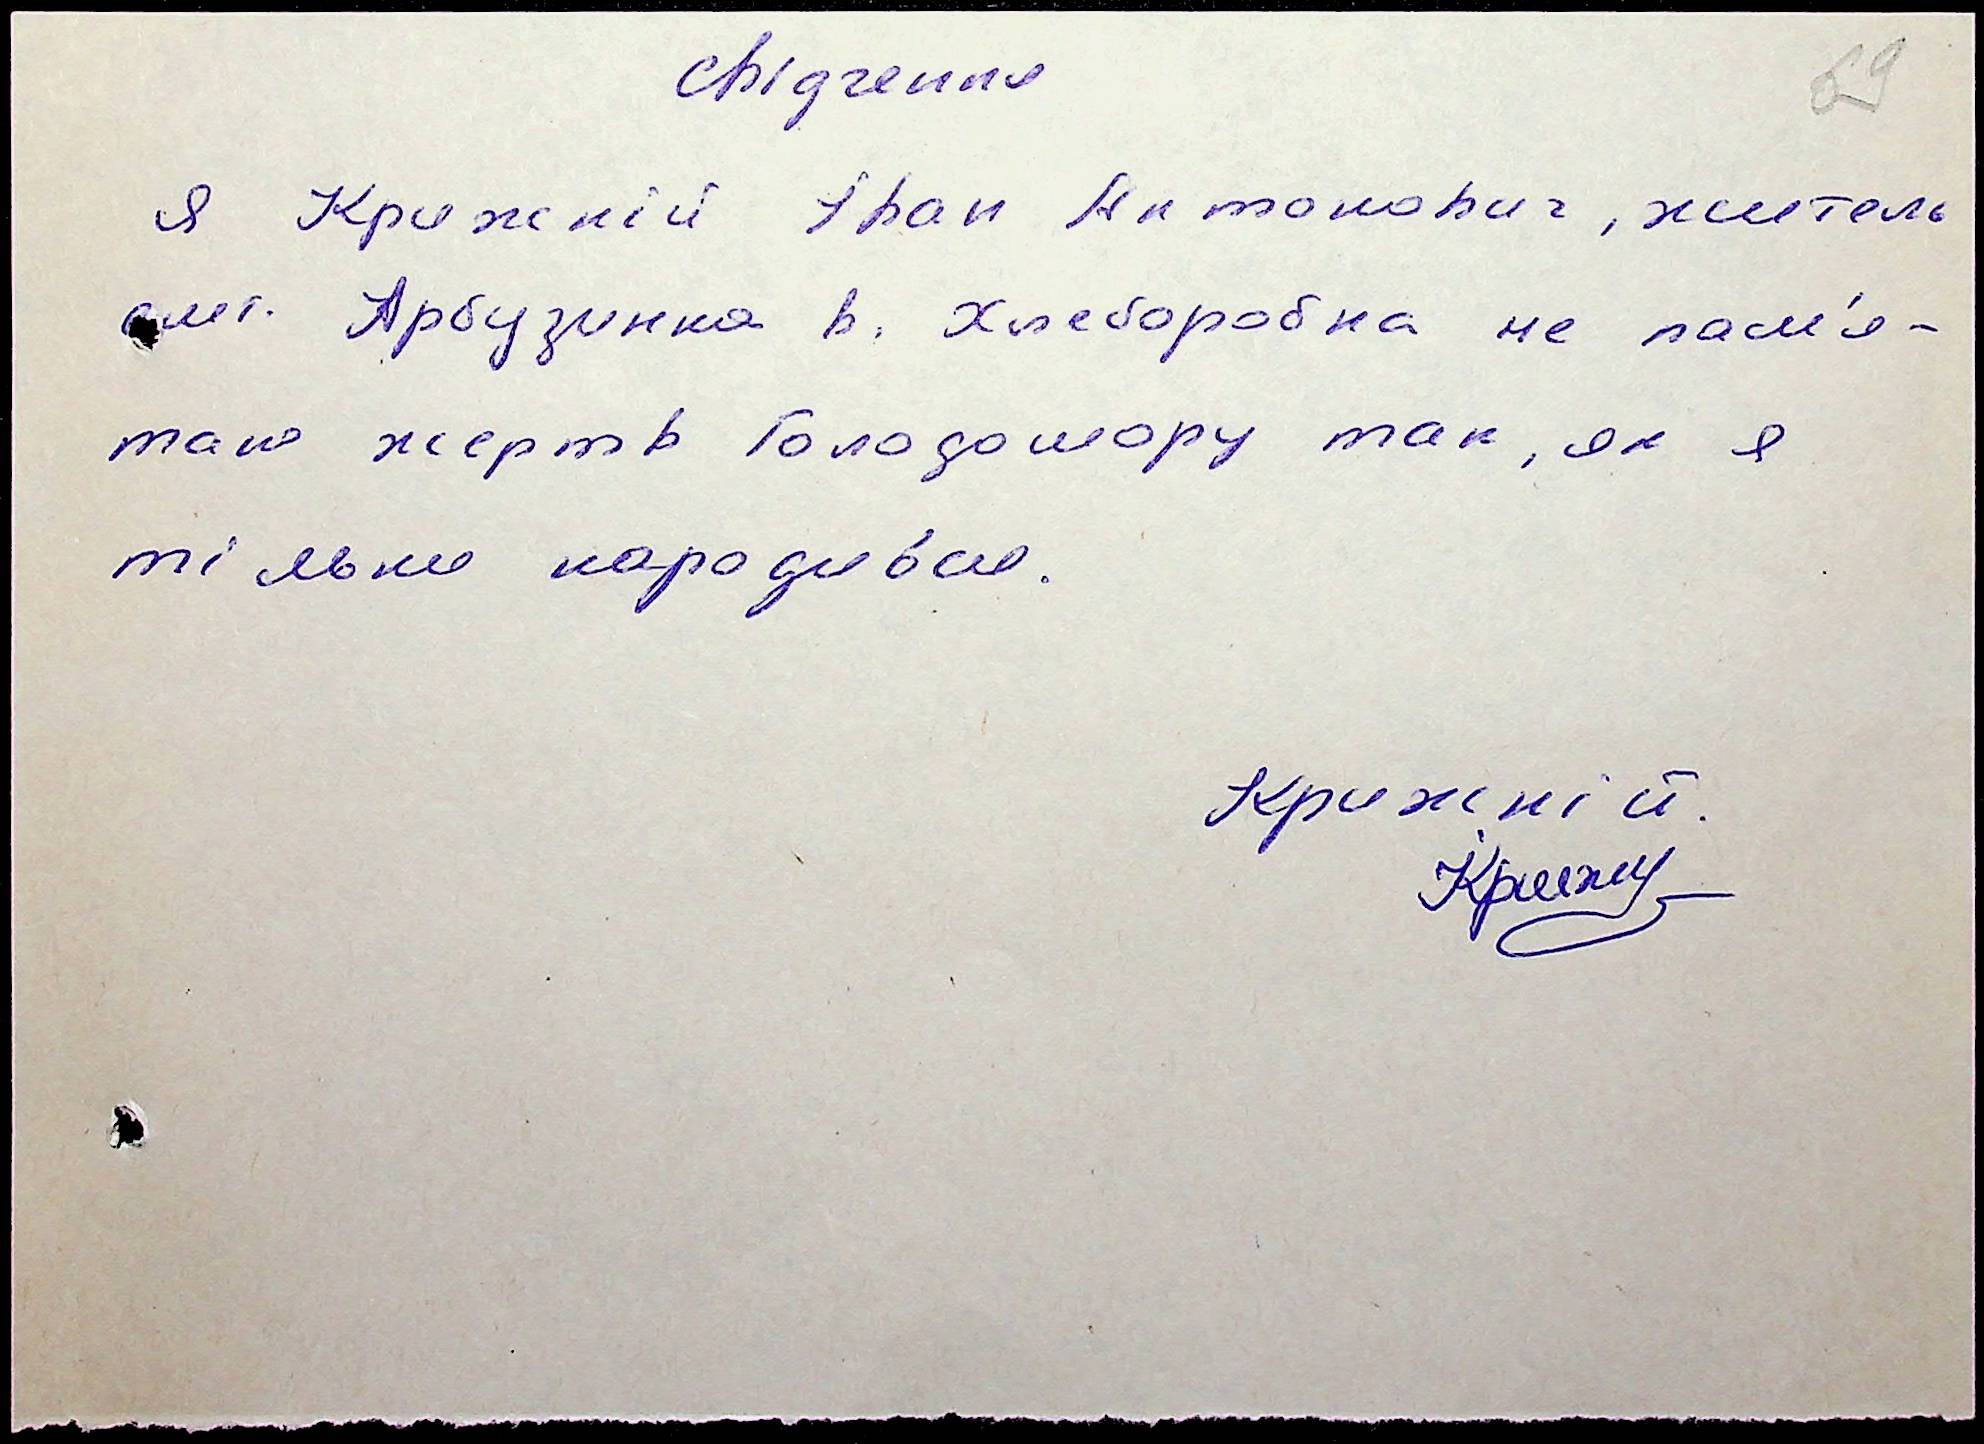 Свідчення
69
Я Крижній Іван Антонович, житель
смт. Арбузинка в. Хлеборобна не пам'я-
таю жертв Голодомору так, як я
тільки народився.
Крижній.